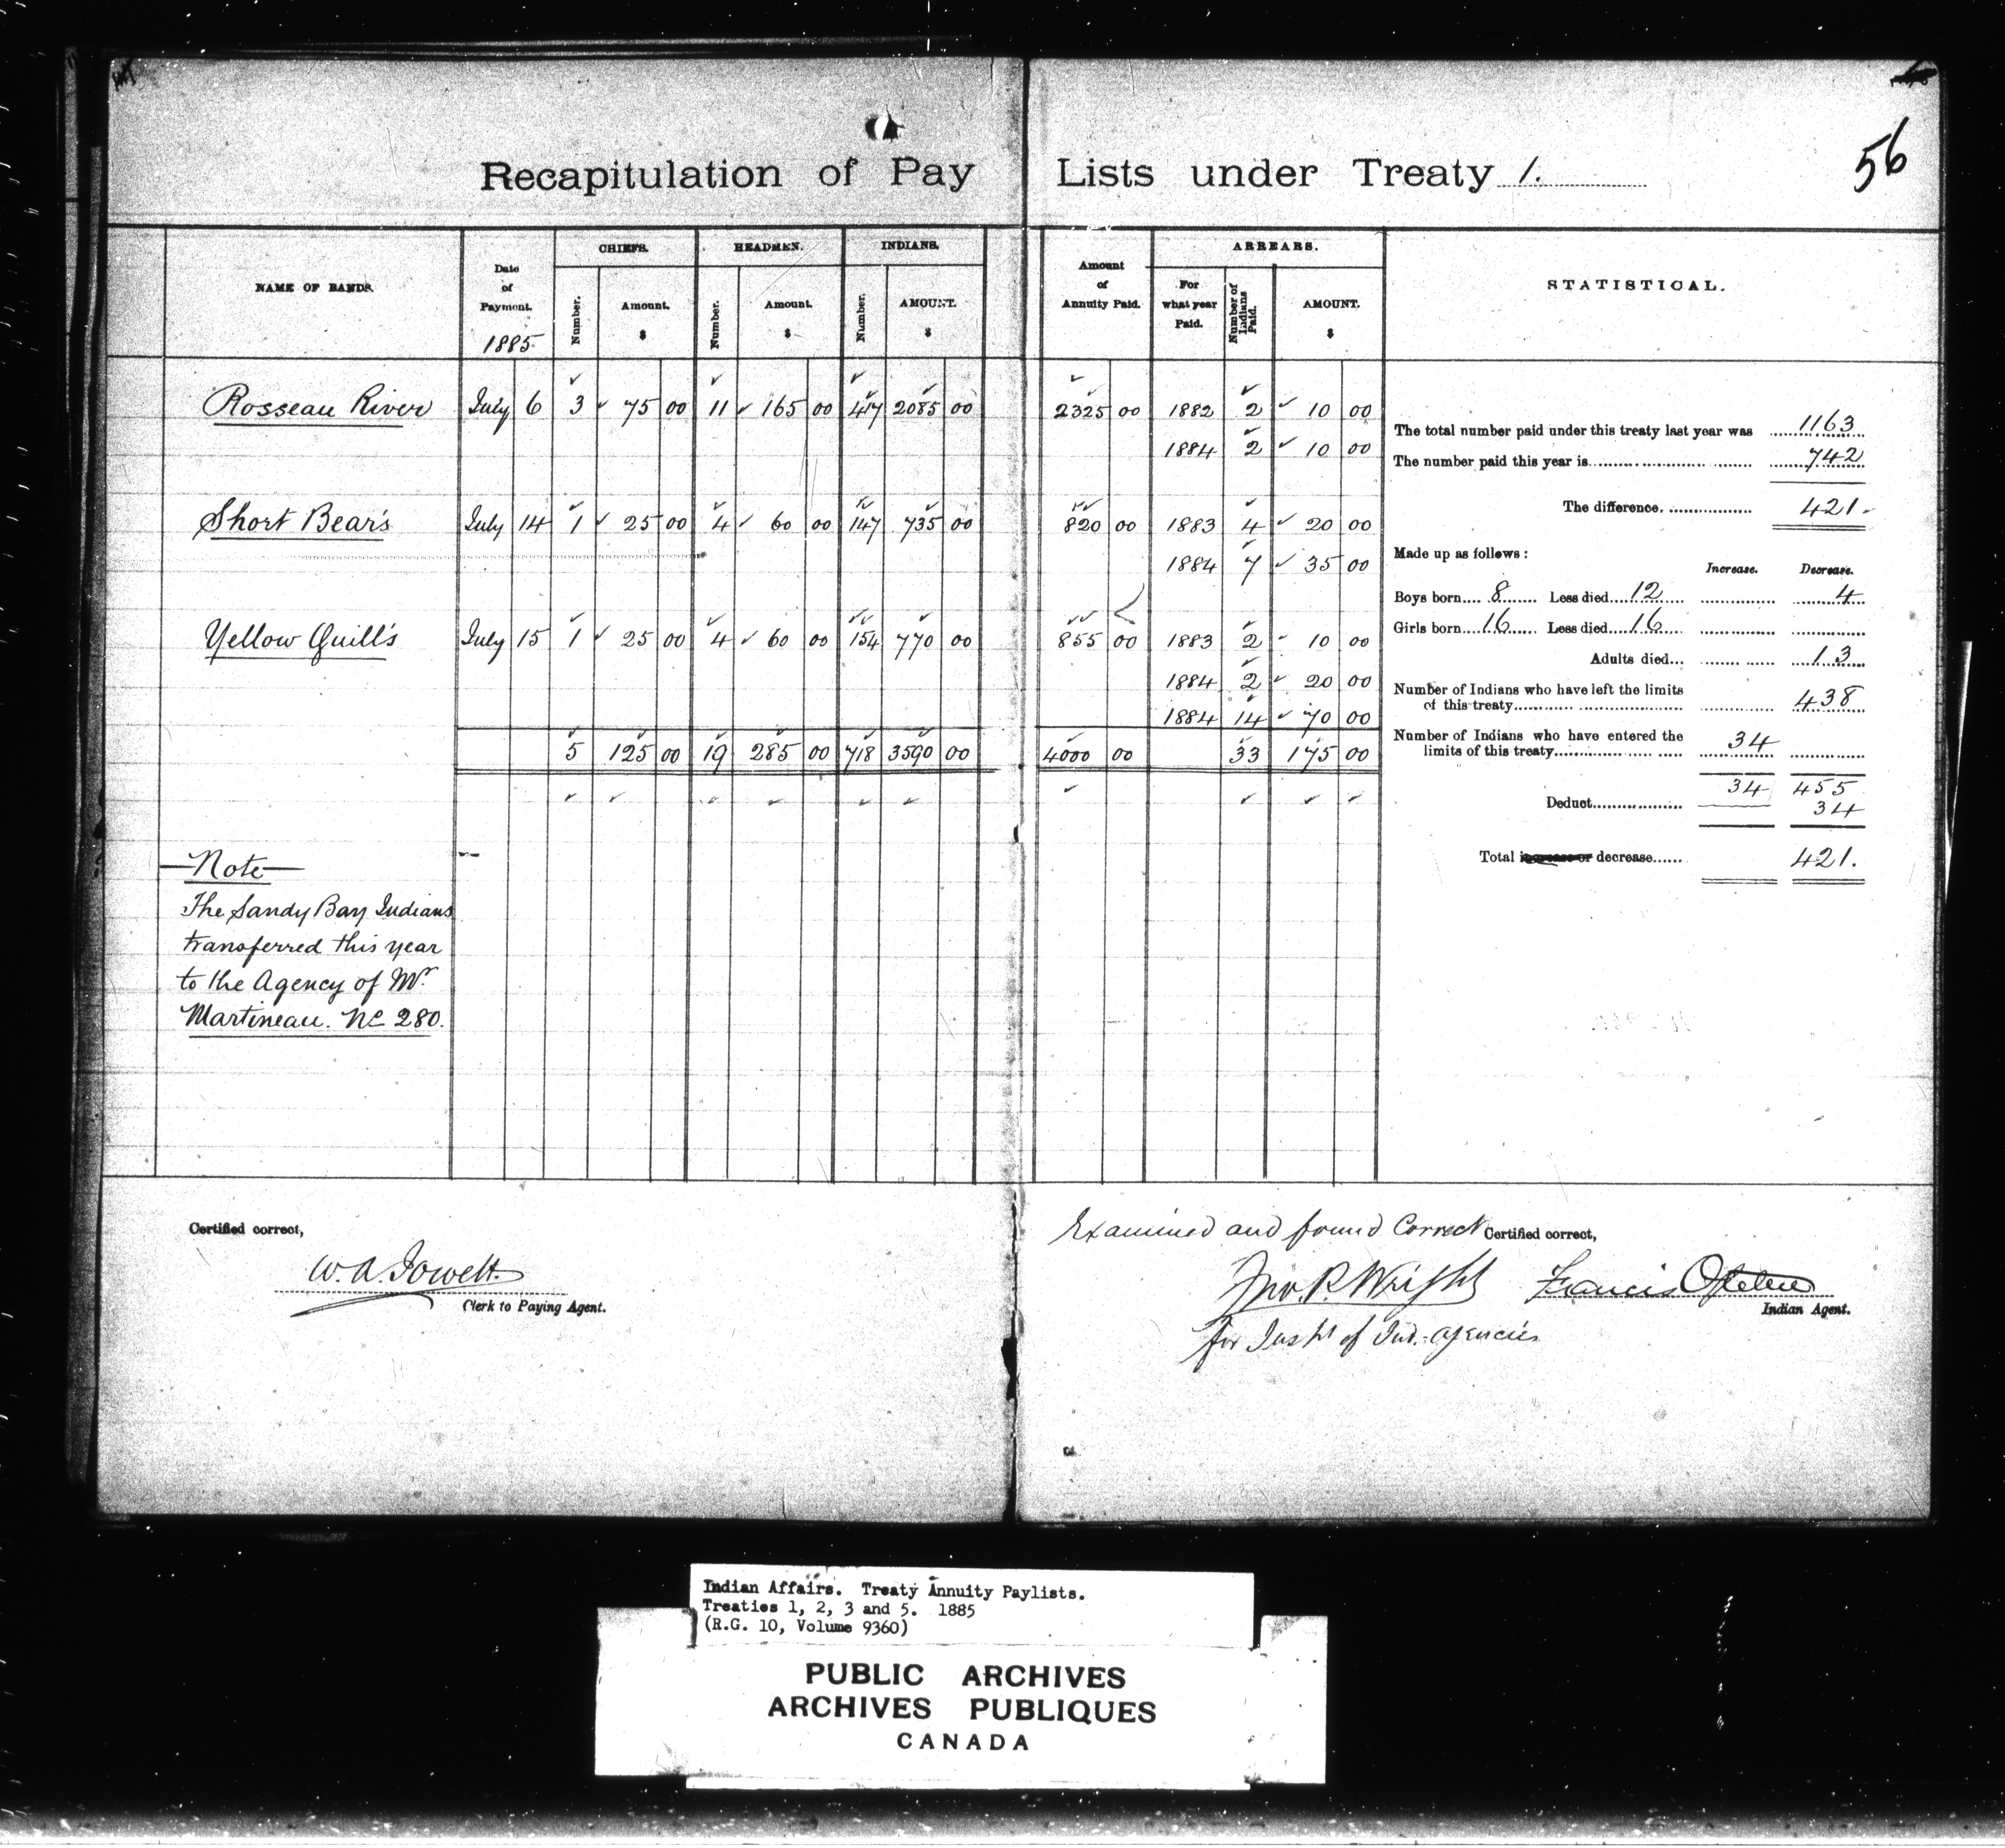 56
Recapitulation of Pay Lists under Treaty 1.
NAME OF BANDS. Date of Payment. 1885 CHIEFS. Number. Amount. $ HEADMEN. Number. Amount. $ INDIANS. Number. AMOUNT. $ Amount of Annuity Paid. ARREARS. For what year Paid. Number of Indians Paid. AMOUNT. $ STATISTICAL.
Rosseau River July 6 3 75 00 11 165 00 417 2085 00 2325 00 1882 2 10 00
1884 2 10 00
Short Bear's July 14 1 25 00 4 60 00 147 735 00 820 00 1883 4 20 00
1884 7 35 00
Yellow Quill's July 15 1 25 00 4 60 00 154 770 00 855 00 1883 2 10 00
1884 2 20 00
1884 14 70 00
5 125 00 19 285 00 718 3590 00 4000 00 33 175 00
The total number paid under this treaty last year was 1163
The number paid this year is 742
The difference. 421.
Made up as follows:
Increase. Decrease.
Boys born 8 Less died 12 4
Girls born 16 Less died 16
Adults died 13
Number of Indians who have left the limits
of this treaty 438
Number of Indians who have entered the
limits of this treaty 34
34 455
Deduct 34
Total increase or decrease 421.
Note
The Sandy Bay Indians
transferred this year
to the Agency of Mr
Martineau. No 280.
Certified correct,
W. A. Jowett
Clerk to Paying Agent.
Examined and found Correct
Jno. P. Wright
for Inspt of Ind. agencies
Certified correct,
Francis Ogletree
Indian Agent.
Indian Affairs. Treaty Annuity Paylists.
Treaties 1, 2, 3 and 5. 1885
(R.G. 10, Volume 9360)
PUBLIC ARCHIVES
ARCHIVES PUBLIQUES
CANADA